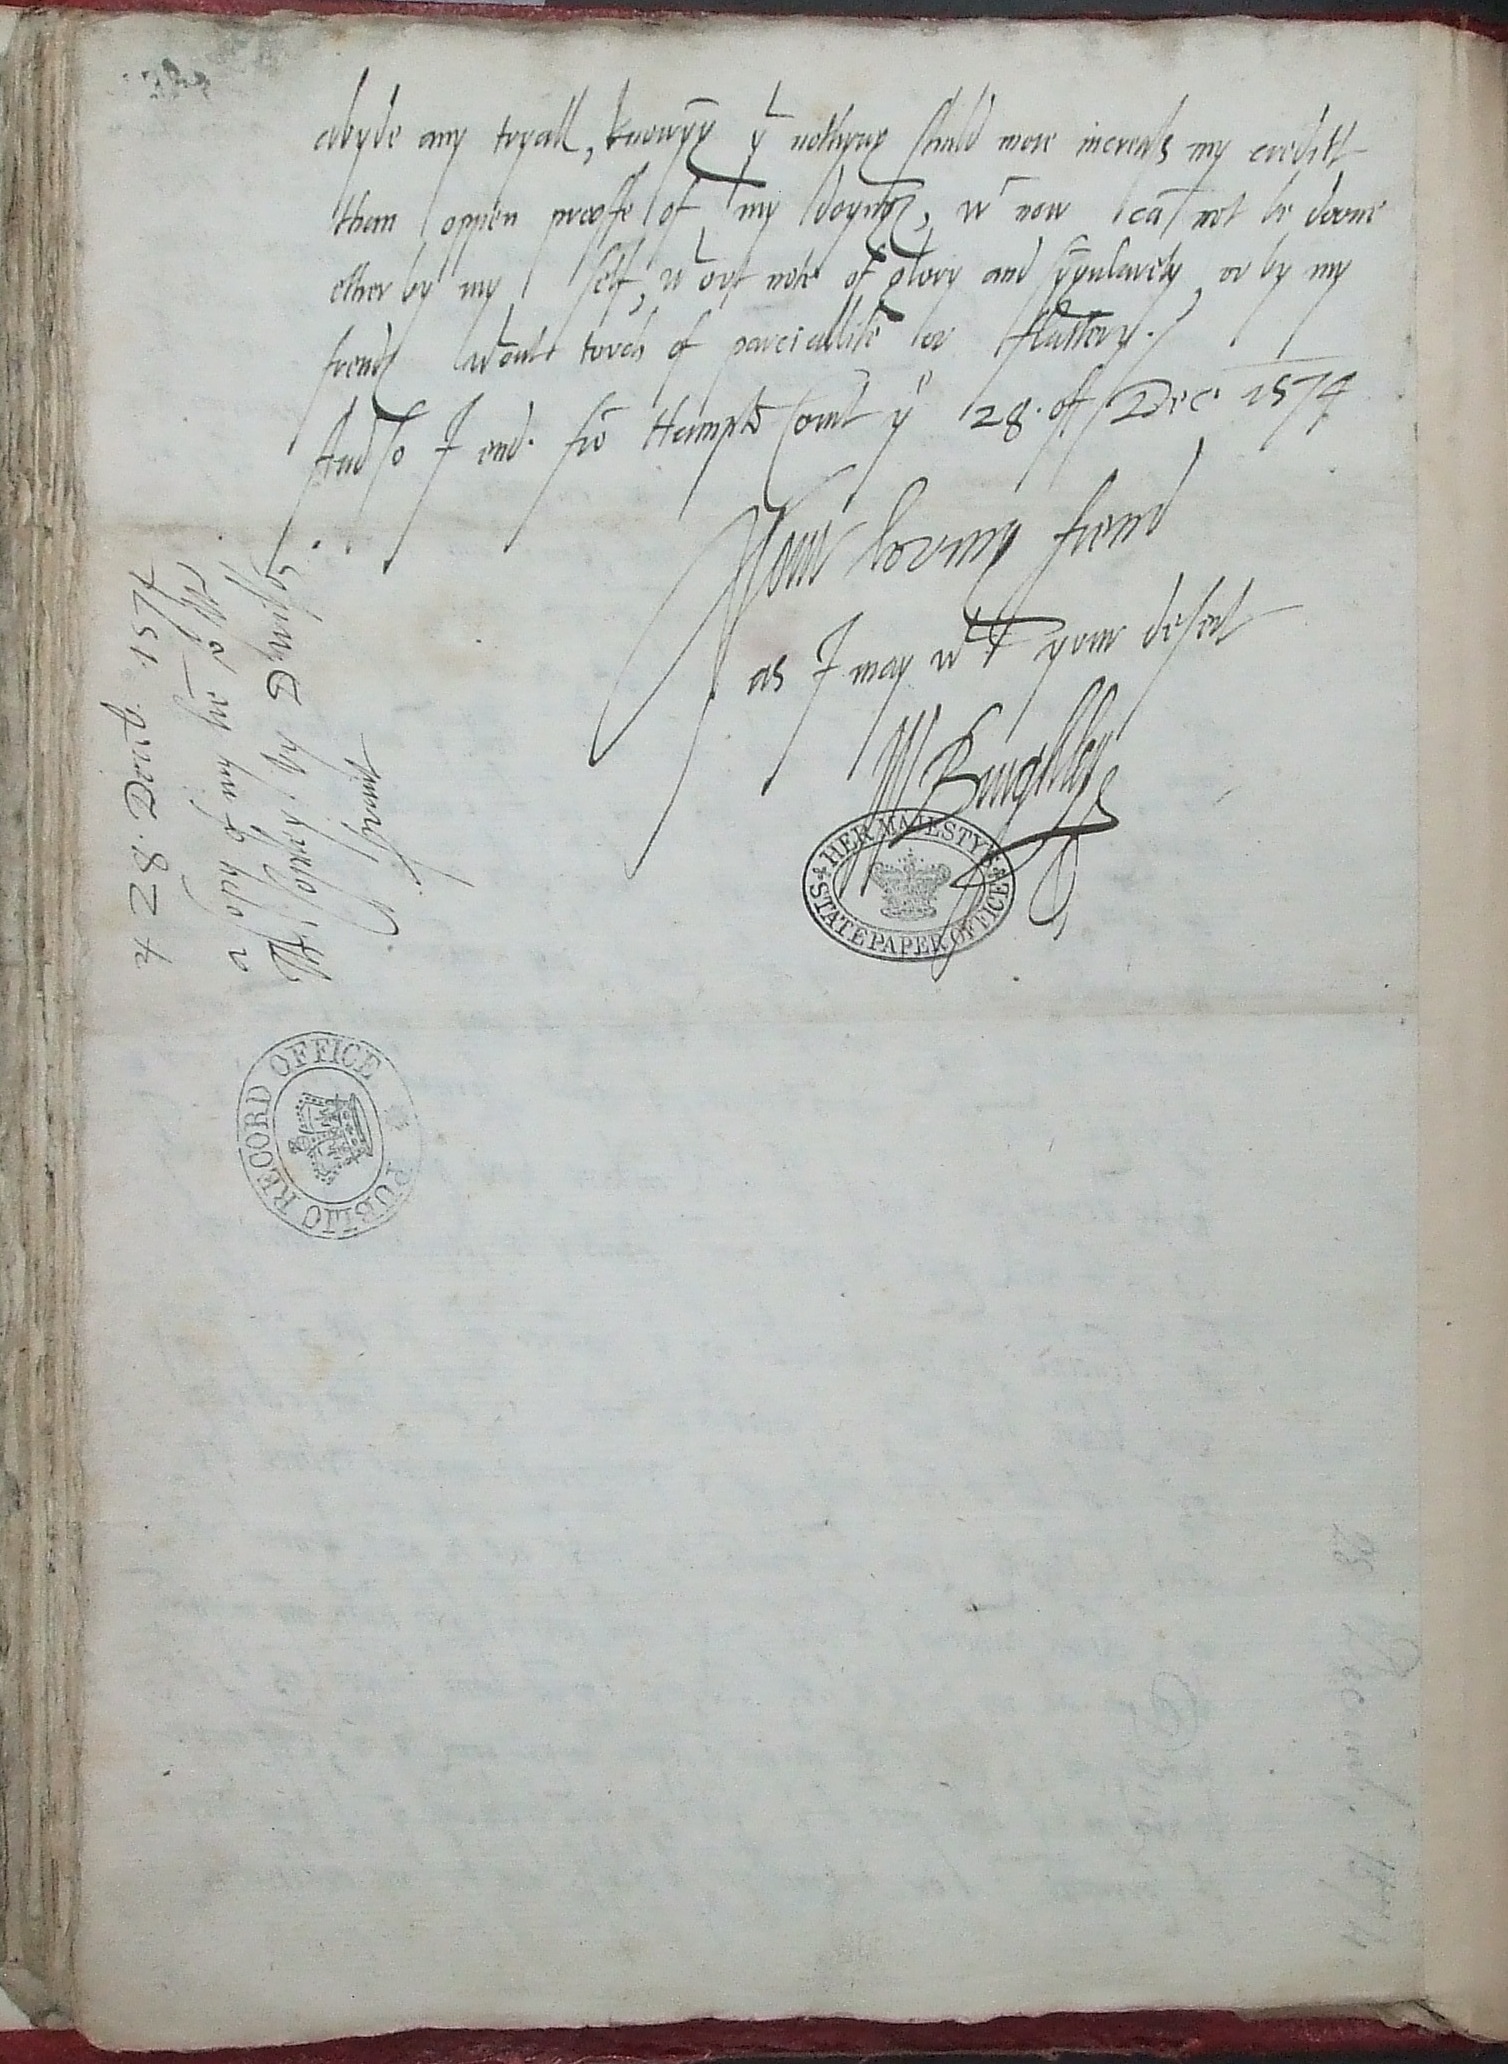 abyde any tryall, knowyg yt nothyng shuld more increass my creditt
than oppen prooffe of my doyngs, wch now cā not be doone
ether by my self, wt out note of glory and sygularety, or by my
frends wtout toroch of parciallite or flattery.
And so I end. frō Hamptō Court ye 28. of Dec. 1574
Your loving frend
as I may wt your desert
W Burghley
HER MAJESTY'S
STATE PAPER OFFICE
28. Decēb. 1574
PUBLIC RECORD OFFICE
28 Decemb. 1574